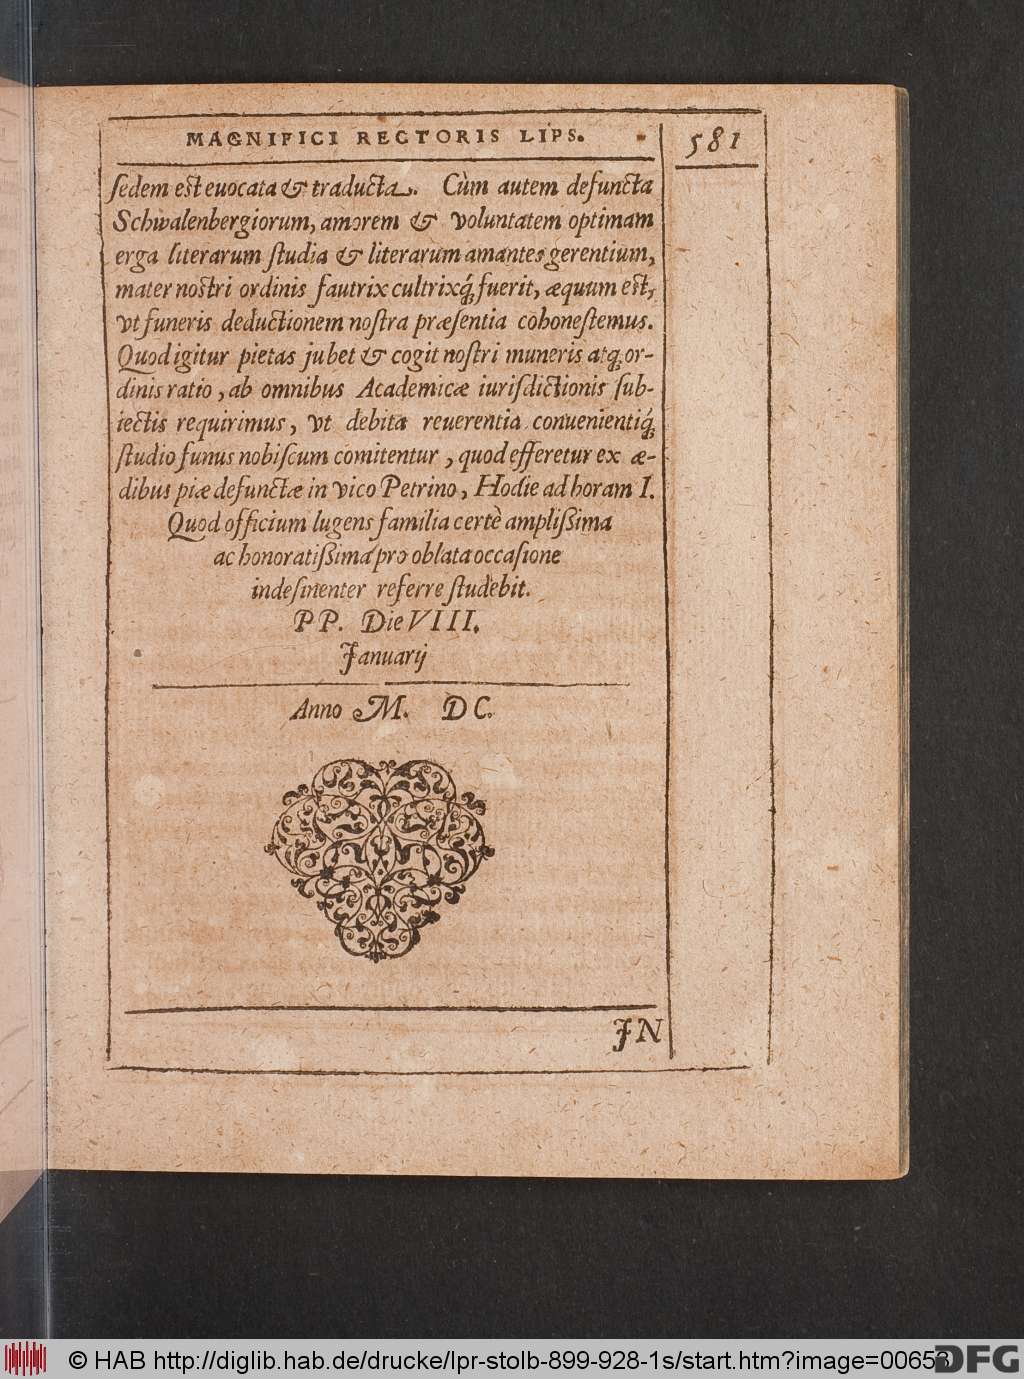 MAGNIFICI RECTORIS LIPS. 581
sedem est euocata & traducta. Cùm autem defuncta
Schwalenbergiorum, amorem & voluntatem optimam
erga literarum studia & literarum amantes gerentium,
mater nostri ordinis fautrix cultrixq́; fuerit, æquum est,
vt funeris deductionem nostra præsentia cohonestemus.
Quod igitur pietas jubet & cogit nostri muneris atq; or-
dinis ratio, ab omnibus Academicæ iurisdictionis sub-
iectis requirimus, vt debita reuerentia conuenientiq́;
studio funus nobiscum comitentur, quod efferetur ex æ-
dibus piæ defunctæ in vico Petrino, Hodie ad horam I.
Quod officium lugens familia certè amplißima
ac honoratißima pro oblata occasione
indesinenter referre studebit.
PP. Die VIII.
Januarij
Anno M. DC.
JN
© HAB http://diglib.hab.de/drucke/lpr-stolb-899-928-1s/start.htm?image=00653
DFG